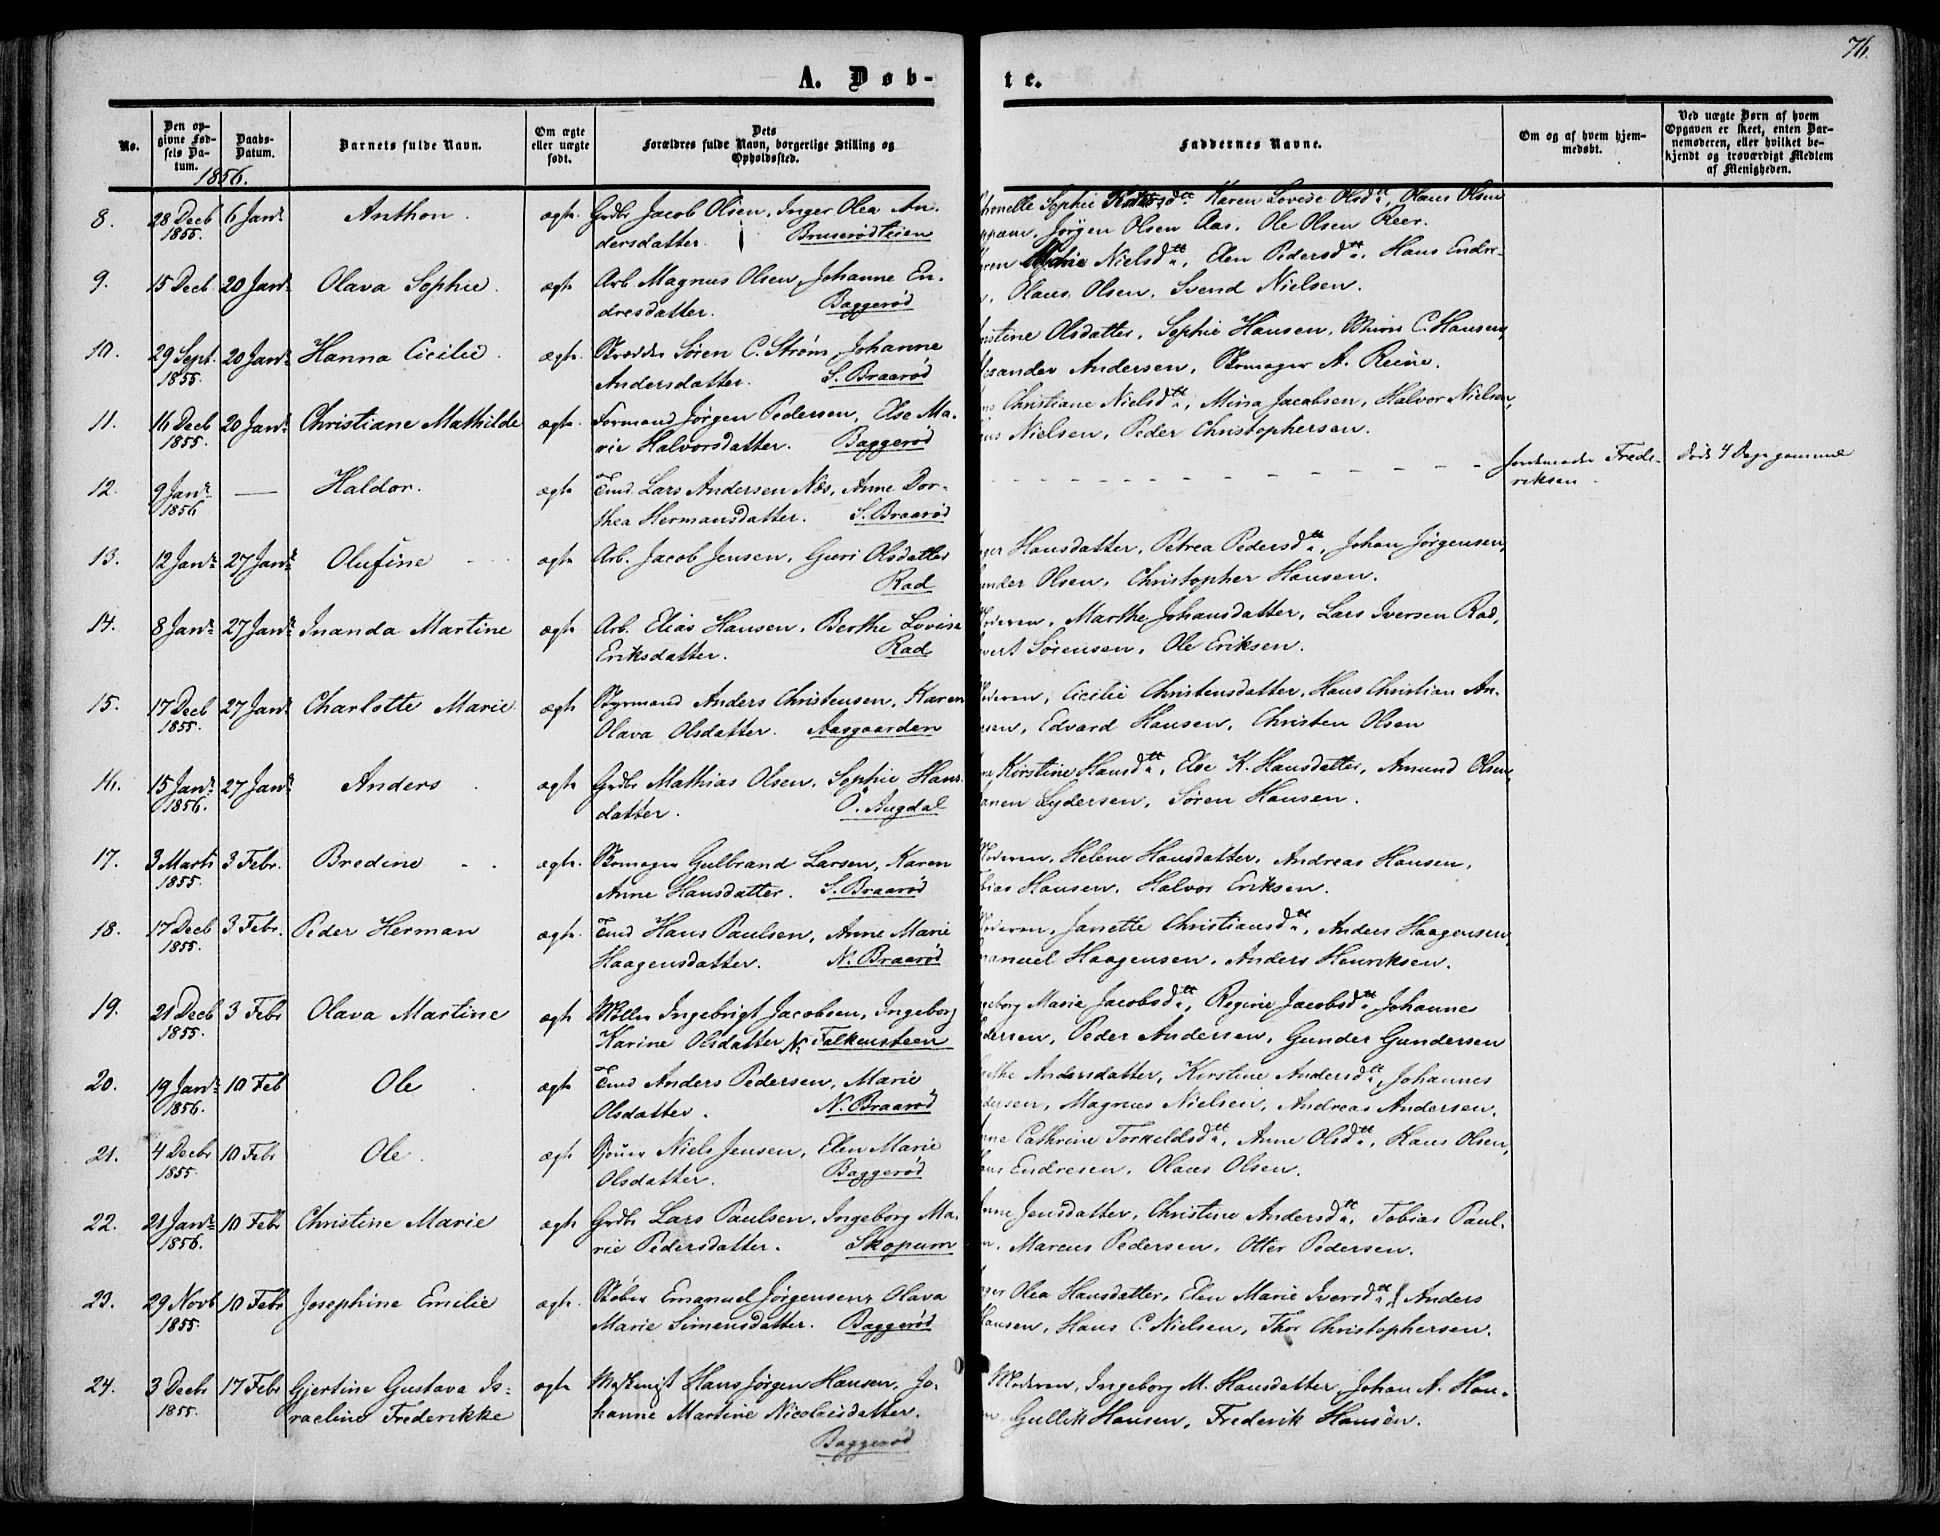 76.
A. Døb-
te.
No.
Den opgivne Fødsels Datum.
Daabs-Datum.
Barnets fulde Navn.
Om ægte eller uægte født.
Dets Forældres fulde Navn, borgerlige Stilling og Opholdssted.
Faddernes Navne.
Om og af hvem hjemmedøbt.
Ved uægte Børn af hvem Opgaven er skeet, enten Barnemoderen, eller hvilket bekjendt og troværdigt Medlem af Menigheden.
1856.
8. 28 Decb 6 Janr Anthon. ægte Grdbr Jacob Olsen, Inger Olea An-
1855. dersdatter. Bruserødteien
Sophie Karen Lovise Olsdtt, Olaus Olsen
Jørgen Olsen Aas, Ole Olsen Reer.
9. 15 Decb. 20 Janr Olava Sophie. ægte Arb Magnus Olsen, Johanne En-
dresdatter. Baggerød
Nielsdtt, Elen Pedersdtt, Hans Endre-
Olaus Olsen, Svend Nielsen.
10. 29 Sept. 20 Janr Hanna Cicilie. ægte Skrædder Søren C. Strøm, Johanne
1855. Andersdatter. S. Braarød
Olsdatter, Sophie Hansen, C. Hansen,
Andersen, Skomager A. Reine.
11. 16 Decb 20 Janr Christiane Mathilde ægte. Formand Jørgen Pedersen, Else Ma-
1855. rie Halvorsdatter. Baggerød
Christiane Nielsdtt, Mina Jacobsen, Halvor Nielsen,
Nielsen, Peder Christophersen.
12. 9 Janr — Haldor. ægte Tmd. Lars Andersen Næs, Anne Dor-
1856 thea Hermansdatter. S. Braarød
- - - - - - - - - - Jordemoder Frede-
riksen. Døde 4 Dage gammel
13. 12 Janr 27 Janr Olufine ægte Arb. Jacob Jensen, Guri Olsdatter
Rad
Hansdatter, Petrea Pedersdtt, Johan Jørgensen,
Olsen, Christopher Hansen.
14. 8 Janr 27 Janr Inanda Martine ægte Arb. Elias Hansen, Berthe Lovise
Eriksdatter. Rad
Marthe Johansdatter, Lars Iversen Rad,
Sørensen, Ole Eriksen.
15. 17 Decb 27 Janr Charlotte Marie. ægte Styrmand Anders Christensen, Karen
1855. Olava Olsdatter. Aasgaarden
Cicilie Christensdatter, Hans Christian An-
Edvard Hansen, Christen Olsen
16. 15 Janr 27 Janr Anders ægte Grdbr Mathias Olsen, Sophie Hans
1856. datter. Ø. Augdal
Kirstine Hansdtt, Else K. Hansdatter, Amund Olsen,
Lydersen, Søren Hansen.
17. 3 Marts 3 Febr. Bredine ægte. Skomager Gulbrand Larsen, Karen
1855. Anne Hansdatter. S. Braarød
Helene Hansdatter, Andreas Hansen,
Hansen, Halvor Eriksen.
18. 17 Decb 3 Febr. Peder Herman ægte. Tmd Hans Paulsen, Anne Marie
1855. Haagensdatter. N. Braarød
Janette Christiansdtt, Anders Haagensen,
Haagensen, Anders Henriksen.
19. 21 Decb 3 Febr Olava Martine ægte Møller Ingebrigt Jacobsen, Ingeborg
1855. Karine Olsdatter N. Falkensteen
Marie Jacobsdtt, Regine Jacobsdtt Johanne
Peder Andersen, Gunder Gundersen
20. 19 Janr 10 Feb Ole ægte Tmd Anders Pedersen, Marie
1856. Olsdatter. N. Braarød
Andersdatter, Kirstine Andersdtt, Johannes
Magnus Nielsen, Andreas Andersen.
21. 4 Decbr 10 Febr Ole. ægte Niels Jensen, Elen Marie
1855. Olsdatter. Baggerød
Cathrine Torkeldsdtt, Anne Olsdtt, Hans Olsen,
Endresen, Olaus Olsen.
22. 21 Janr 10 Febr Christine Marie ægte Grdbr Lars Paulsen, Ingeborg Ma-
1856. rie Pedersdatter. Skopum
Jensdatter, Christine Andersdtt, Tobias Paul-
Marcus Pedersen, Otter Pedersen.
23. 29 Novb 10 Febr Josephine Emilie ægte. Støber Emanuel Jørgensen, Olava
1855. Marie Simensdatter. Baggerød
Olea Hansdatter, Elen Marie Iversdtt, Anders
Hansen, Hans C. Nielsen, Thor Christophersen.
24. 3 Decbr 17 Febr Gjertine Gustava Is- ægte Maskenist Hans Jørgen Hansen, Jo-
1855. raeline Frederikke hanne Martine Nicolaisdatter.
Baggerød
Moderen, Ingeborg M. Hansdatter, Johan A. Han-
Gullik Hansen, Frederik Hansen.